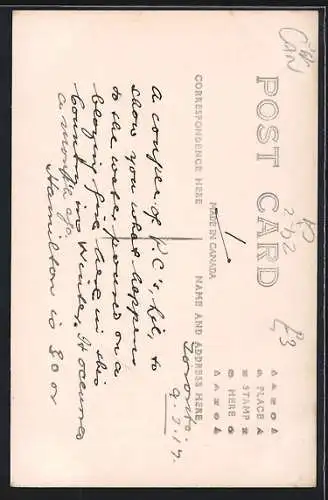 CAN
£3
POST CARD
232
AZO
PLACE
STAMP
HERE
AZO
CORRESPONDENCE HERE
MADE IN CANADA
NAME AND ADDRESS HERE
Toronto
9.2.17.
A couple of P.C's, to
show you what happens
to the water poured on a
blazing fire here in this
country in Winter. It occured
a month ago
Hamilton is 30 or